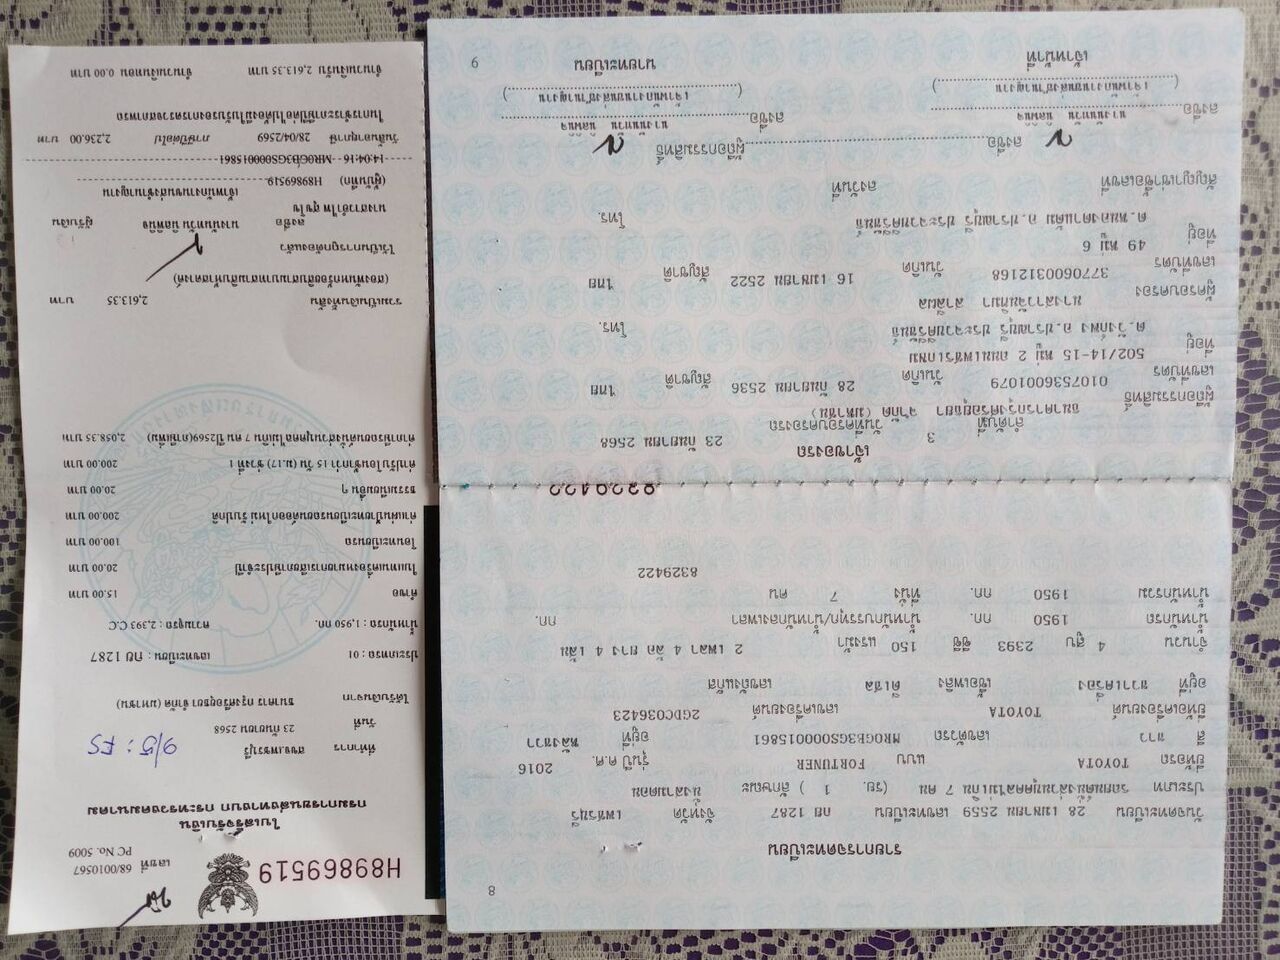 8
รายการจดทะเบียน
วันจดทะเบียน 28 เมษายน 2559 เลขทะเบียน กย 1287 จังหวัด เพชรบุรี
ประเภท รถยนต์นั่งส่วนบุคคลไม่เกิน 7 คน (รย. 1 ) ลักษณะ นั่งสามตอน
ยี่ห้อรถ TOYOTA แบบ FORTUNER รุ่นปี ค.ศ. 2016
สี ขาว เลขตัวรถ MR0GB3GS000015861 อยู่ที่ หลังขวา
ยี่ห้อเครื่องยนต์ TOYOTA เลขเครื่องยนต์ 2GDC036423
อยู่ที่ ขวาเครื่อง เชื้อเพลิง ดีเซล เลขถังแก๊ส
จำนวน 4 สูบ 2393 ซีซี 150 แรงม้า 2 เพลา 4 ล้อ ยาง 4 เส้น
น้ำหนักรถ 1950 กก. น้ำหนักบรรทุก/น้ำหนักลงเพลา กก.
น้ำหนักรวม 1950 กก. ที่นั่ง 7 คน
8329422
8329422
เจ้าของรถ
ลำดับที่ 3 วันที่ครอบครองรถ 23 กันยายน 2568
ผู้ถือกรรมสิทธิ์ ธนาคารกรุงศรีอยุธยา จำกัด (มหาชน)
เลขที่บัตร 0107536001079 วันเกิด 28 กันยายน 2536 สัญชาติ ไทย
ที่อยู่ 502/14-15 หมู่ 2 ถนนเพชรเกษม
ต.วังก์พง อ.ปราณบุรี ประจวบคีรีขันธ์ โทร.
ผู้ครอบครอง
เลขที่บัตร 3770600312168 วันเกิด 16 เมษายน 2522 สัญชาติ ไทย
ที่อยู่ 49 หมู่ 6
ต.หนองตาแต้ม อ.ปราณบุรี ประจวบคีรีขันธ์ โทร.
สัญญาเช่าซื้อเลขที่ ลงวันที่
ลงชื่อ ผู้ถือกรรมสิทธิ์
ลงชื่อ ลงชื่อ
(เจ้าพนักงานขนส่งชำนาญงาน) (เจ้าพนักงานขนส่งชำนาญงาน)
เจ้าหน้าที่ นายทะเบียน
9
H89869519
เลขที่ 68/0010567
PC No. 5009
ใบเสร็จรับเงิน
กรมการขนส่งทางบก กระทรวงคมนาคม
ที่ทำการ สขจ.เพชรบุรี
วันที่ 23 กันยายน 2568
9/5 : FS
ได้รับเงินจาก ธนาคาร กรุงศรีอยุธยา จำกัด (มหาชน)
ประเภทรถ : 01 เลขทะเบียน : กย 1287
น้ำหนักรถ : 1,950 กก. ความจุรถ : 2,393 C.C
คำขอ 15.00 บาท
ใบแทนเครื่องหมายการเสียภาษีประจำปี 20.00 บาท
โอนทะเบียนรถ 100.00 บาท
200.00 บาท
ธรรมเนียมอื่น ๆ 20.00 บาท
200.00 บาท
2,058.35 บาท
รวมเป็นเงินทั้งสิ้น 2,613.35 บาท
(สองพันหกร้อยสิบสามบาทสามสิบห้าสตางค์)
ไว้เป็นการถูกต้องแล้ว
ลงชื่อ ผู้รับเงิน
เจ้าพนักงานขนส่งชำนาญงาน
(ผู้บันทึก) H89869519
14:04:16 MR0GB3GS000015861
วันสิ้นอายุภาษี 28/04/2569 ภาษีปีต่อไป 2,236.00 บาท
ในการชำระภาษีปีต่อไปต้องมีใบรับรองการตรวจสภาพรถ
จำนวนเงินรับ 2,613.35 บาท จำนวนเงินทอน 0.00 บาท